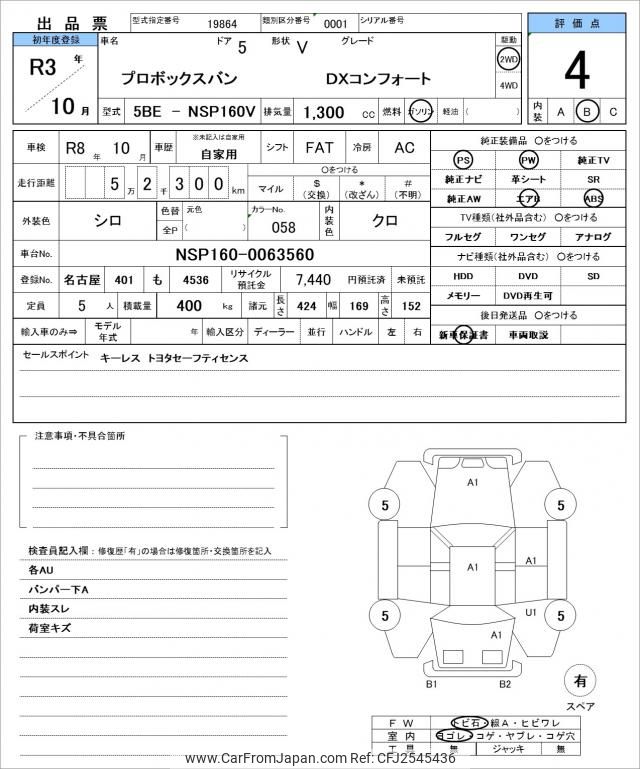 出品票 型式指定番号 19864 類別区分番号 0001 シリアル番号
評価点
初年度登録 車名 ドア 5 形状 V グレード 駆動
R3 年 プロボックスバン DXコンフォート 2WD 4
4WD
10 月 型式 5BE － NSP160V 排気量 1,300 cc 燃料 ガソリン 軽油 ( ) 内装 A B C
車検 R8 年 10 月 車歴 ※未記入は自家用 自家用 シフト FAT 冷房 AC
純正装備品 〇をつける
PS PW 純正TV
走行距離 5 万 2 千 3 0 0 km 〇をつける
マイル $ (交換) * (改ざん) # (不明)
純正ナビ 革シート SR
純正AW エアB ABS
外装色 シロ 色替 元色 全P ( ) カラーNo. 058 内装色 クロ
TV種類(社外品含む) 〇をつける
フルセグ ワンセグ アナログ
車台No. NSP160-0063560
ナビ種類(社外品含む) 〇をつける
登録No. 名古屋 401 も 4536 リサイクル預託金 7,440 円預託済 未預託
HDD DVD SD
メモリー DVD再生可
定員 5 人 積載量 400 kg 諸元 長さ 424 幅 169 高さ 152
後日発送品 〇をつける
輸入車のみ⇒ モデル年式 年 輸入区分 ディーラー 並行 ハンドル 左 右
新車保証書 車両取説
セールスポイント キーレス トヨタセーフティセンス
注意事項・不具合箇所
検査員記入欄：修復歴「有」の場合は修復箇所・交換箇所を記入
各AU
バンパー下A
内装スレ
荷室キズ
A1
5 5
A1 A1
5 U1 5
A1
B1 B2
有
スペア
F W トビ石・線A・ヒビワレ
室 内 ヨゴレ・コゲ・ヤブレ・コゲ穴
工 具 無 ジャッキ 無
www.CarFromJapan.com Ref: CFJ2545436